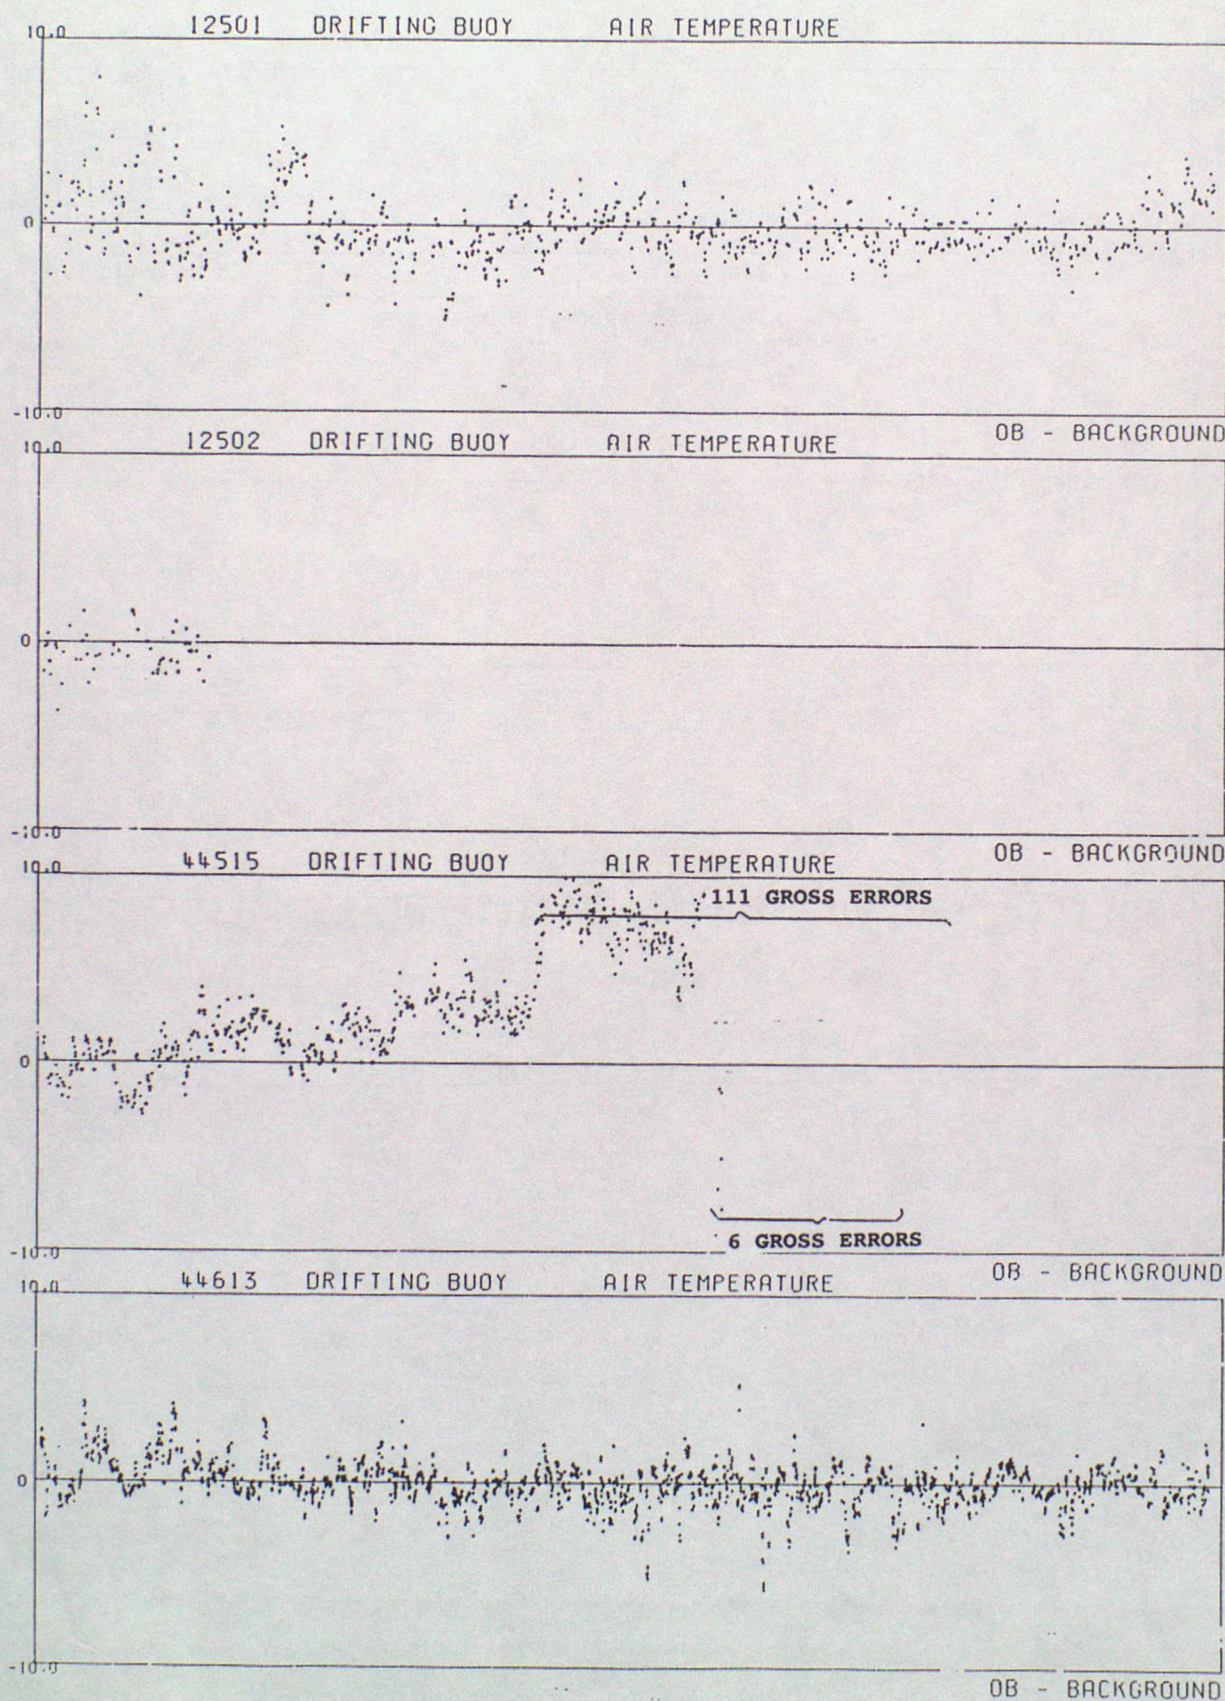 12501 DRIFTING BUOY AIR TEMPERATURE
10.0
0
-10.0
OB - BACKGROUND
12502 DRIFTING BUOY AIR TEMPERATURE
10.0
0
-10.0
OB - BACKGROUND
44515 DRIFTING BUOY AIR TEMPERATURE
10.0
111 GROSS ERRORS
0
6 GROSS ERRORS
-10.0
OB - BACKGROUND
44613 DRIFTING BUOY AIR TEMPERATURE
10.0
0
-10.0
OB - BACKGROUND